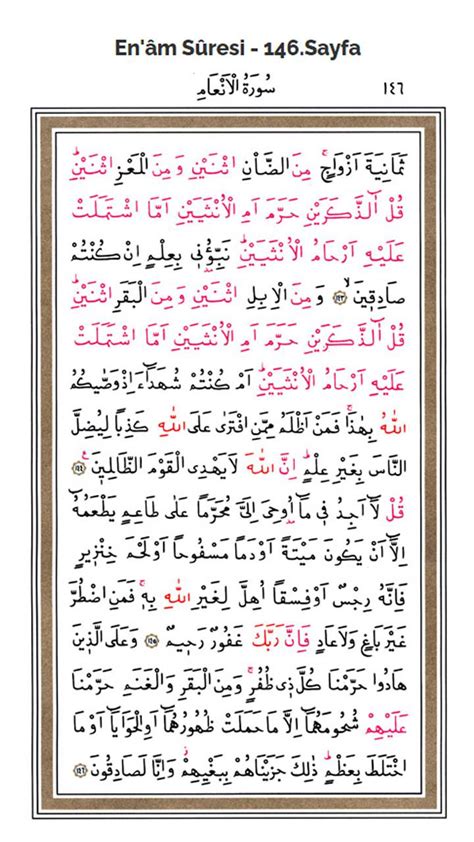 En'âm Sûresi - 146.Sayfa
سُورَةُ الْاَنْعَامِ ١٤٦
ثَمَانِيَةَ اَزْوَاجٍۚ مِنَ الضَّأْنِ اثْنَيْنِ وَمِنَ الْمَعْزِ اثْنَيْنِۜ
قُلْ آٰلذَّكَرَيْنِ حَرَّمَ اَمِ الْاُنْثَيَيْنِ اَمَّا اشْتَمَلَتْ
عَلَيْهِ اَرْحَامُ الْاُنْثَيَيْنِۜ نَبِّؤُ۫ن۪ي بِعِلْمٍ اِنْ كُنْتُمْ
صَادِق۪ينَۙ ﴿١٤٣﴾ وَمِنَ الْاِبِلِ اثْنَيْنِ وَمِنَ الْبَقَرِ اثْنَيْنِۜ
قُلْ آٰلذَّكَرَيْنِ حَرَّمَ اَمِ الْاُنْثَيَيْنِ اَمَّا اشْتَمَلَتْ
عَلَيْهِ اَرْحَامُ الْاُنْثَيَيْنِۜ اَمْ كُنْتُمْ شُهَدَٓاءَ اِذْ وَصّٰيكُمُ
اللّٰهُ بِهٰذَاۚ فَمَنْ اَظْلَمُ مِمَّنِ افْتَرٰى عَلَى اللّٰهِ كَذِبًا لِيُضِلَّ
النَّاسَ بِغَيْرِ عِلْمٍۜ اِنَّ اللّٰهَ لَا يَهْدِي الْقَوْمَ الظَّالِم۪ينَ ﴿١٤٤﴾
قُلْ لَٓا اَجِدُ ف۪ي مَٓا اُو۫حِيَ اِلَيَّ مُحَرَّمًا عَلٰى طَاعِمٍ يَطْعَمُهُٓ
اِلَّٓا اَنْ يَكُونَ مَيْتَةً اَوْ دَمًا مَسْفُوحًا اَوْ لَحْمَ خِنْز۪يرٍ
فَاِنَّهُ رِجْسٌ اَوْ فِسْقًا اُهِلَّ لِغَيْرِ اللّٰهِ بِه۪ۚ فَمَنِ اضْطُرَّ
غَيْرَ بَاغٍ وَلَا عَادٍ فَاِنَّ رَبَّكَ غَفُورٌ رَح۪يمٌ ﴿١٤٥﴾ وَعَلَى الَّذ۪ينَ
هَادُوا حَرَّمْنَا كُلَّ ذ۪ي ظُفُرٍۚ وَمِنَ الْبَقَرِ وَالْغَنَمِ حَرَّمْنَا
عَلَيْهِمْ شُحُومَهُمَٓا اِلَّا مَا حَمَلَتْ ظُهُورُهُمَٓا اَوِ الْحَوَايَٓا اَوْ مَا
اخْتَلَطَ بِعَظْمٍۜ ذٰلِكَ جَزَيْنَاهُمْ بِبَغْيِهِمْۘ وَاِنَّا لَصَادِقُونَ ﴿١٤٦﴾